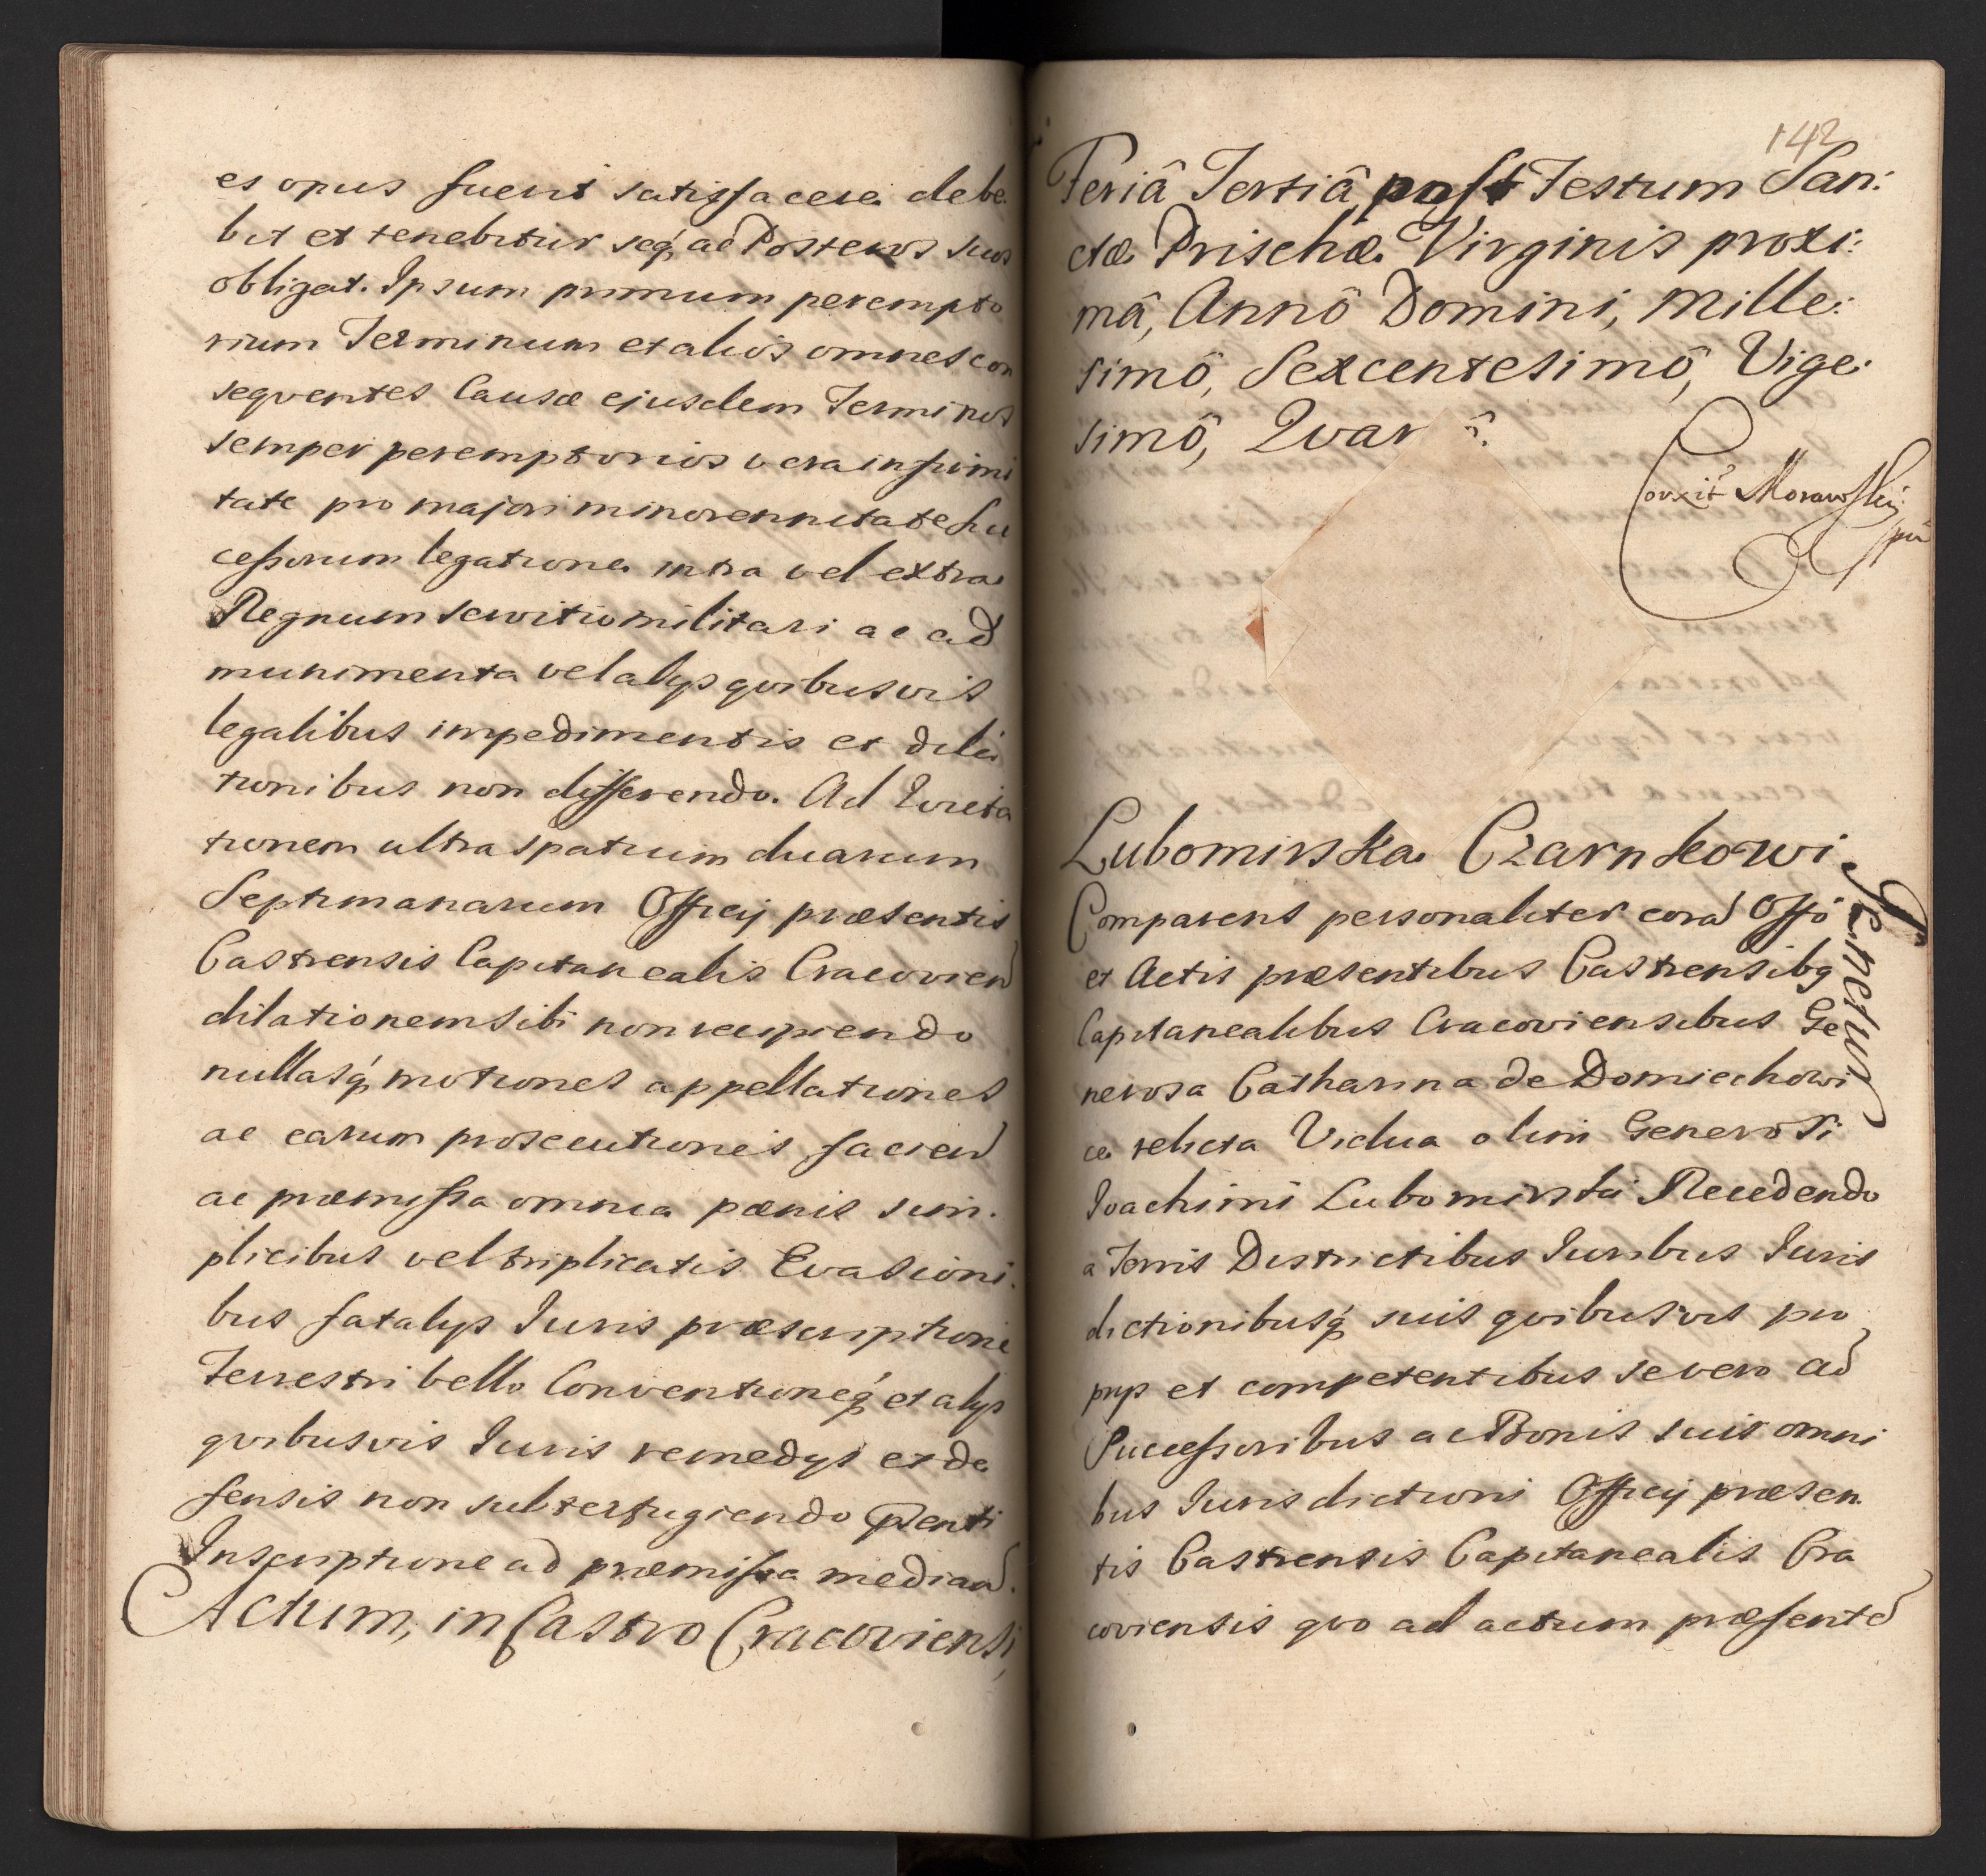 es opus fuerit satisfacere debe
bit et tenebitur seq́ ac Posteros suos
obligat. Ipsum primum perempto
rium Terminum et alios omnes con
sequentes Causæ ejusdem Terminos
semper peremptorios vera infirmi
tate pro majori minorennitate Suc
cessorum legatione intra vel extra
Regnum servitio militari ac ad
munimenta vel alys quibusvis
legalibus impedimentis et dila
tionibus non differendo. Ad
tionem ultra spatium duarum
Septimanarum Officij præsentis
Castrensis Capitanealis Cracovien
dilationem sibi non recipiendo
nullasq́ motiones appellationes
ac earum prosecutiones facien
ac præmissa omnia pænis sim.
plicibus vel triplicatis Evasioni.
bus fatalys Iuris præscriptione
Terrestri bello Conventioneq́ et alys
quibusvis Iuris remedys et de
fensis non subterfugiendo Pnti
Inscriptione ad præmissa median.
Actum, in Castro Cracoviensi,
142
Feriâ Tertiâ post Festum San:
ctæ Prischæ Virginis proxi:
mâ, Annô Domini, Mille:
simô, Sexcentesimô, Vige:
simô, Qvar ô.
Corrxit Morawski
mp
Lubomirska Czarnkowi
Tenetur
Comparens personaliter corā Offō
et Actis præsentibus Castrensibq
Capitanealibus Cracoviensibus Ge
nerosa Catharina de Domiechowi
ce relicta Vidua olim Generosi
Ioachimi Lubomirski Recedendo
a Terris Districtibus Iuribus Iuris
dictionibusq́ suis qvibusvis pro
prys et competentibus se vero ac
Successoribus ac Bonis suis omni
bus Iurisdictioni Officij præsen
tis Castrensis Capitanealis Cra
coviensis qvo ad actum præsente